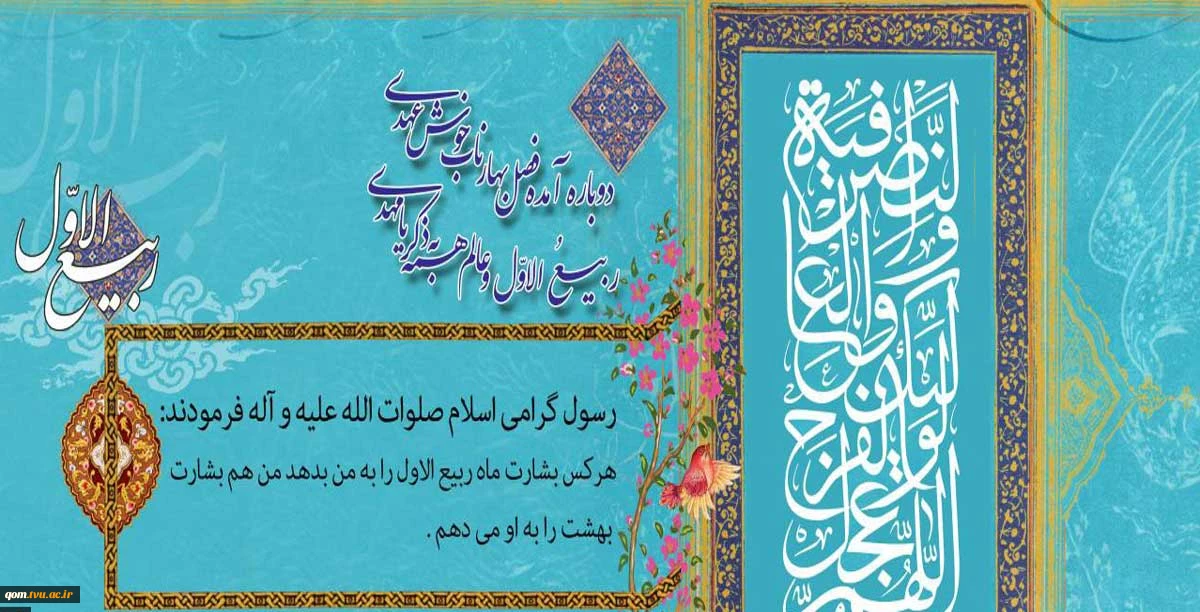 دوباره آمده فصل بهار ناب خوش عهدی
ربیعُ الاوّل و عالم همه به ذکر یا مهدی
ربیع الاوّل
رسول گرامی اسلام صلوات الله علیه و آله فرمودند:
هرکس بشارت ماه ربیع الاول را به من بدهد من هم بشارت
بهشت را به او می دهم .
اللّهم عجّل لولیّک الفرج والعافیة والنّصر
ربیع الاوّل
qom.tvu.ac.ir